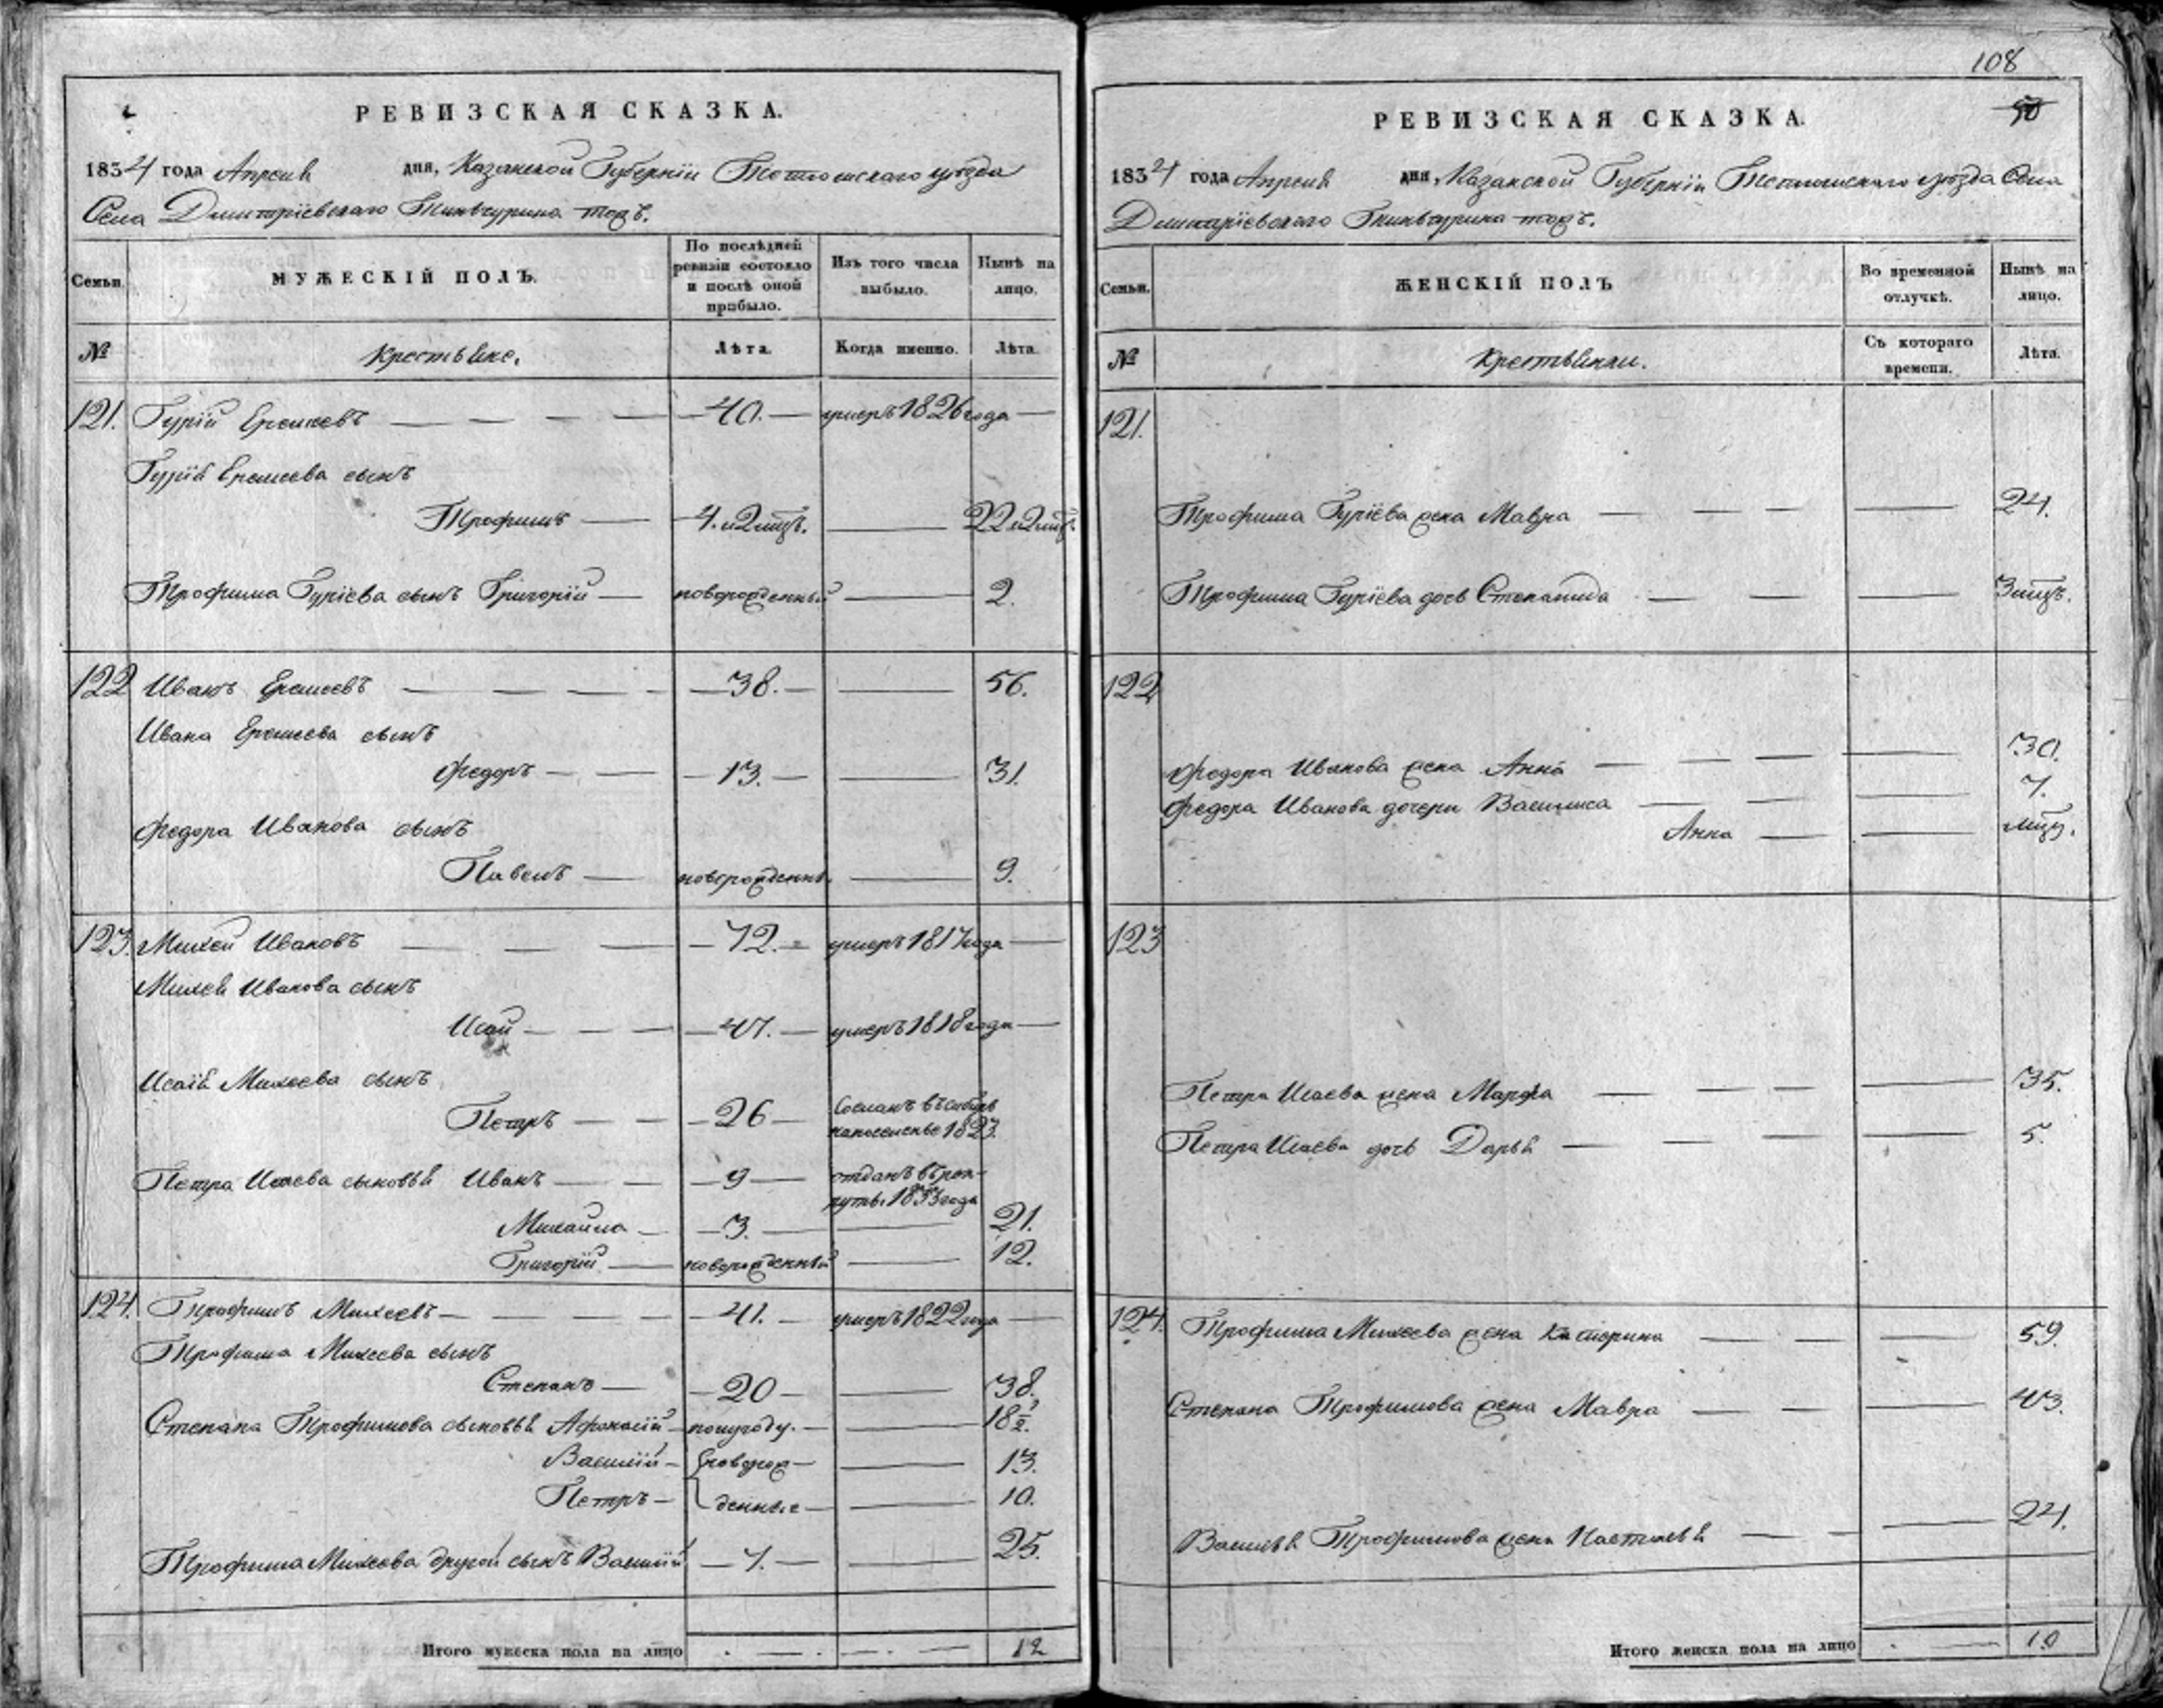 РЕВИЗСКАЯ СКАЗКА.
1834 года Апреля дня, Казанской Губерніи Тетюшскаго уѣзда
Села Дмитріевскаго Тинчурина тожъ.
Семьи.
МУЖЕСКІЙ ПОЛЪ.
По послѣдней ревизіи состояло и послѣ оной прибыло.
Изъ того числа выбыло.
Нынѣ на лицо.
№
Крестьяне.
Лѣта.
Когда именно.
Лѣта.
121. Гурій Еремеевъ 40. умеръ 1826 года
Гурія Еремеева сынъ
Трофимъ 4. и 2 мцъ. 22 и 2 мцъ.
Трофима Гуріева сынъ Григорій новорожденный 2.
122 Иванъ Еремеевъ 38. 56.
Ивана Еремеева сынъ
Федоръ 13. 31.
Федора Иванова сынъ
Павелъ новорожденны. 9.
123. Михей Ивановъ 72. умеръ 1817 года
Михея Иванова сынъ
Исай 47. умеръ 1818 года
Исаія Михеева сынъ
Петръ 26 Сосланъ въ сибирь на поселенье 1823.
Петра Исаева сыновья Иванъ 9 отданъ въ рекруты 1833 года
Михайла 3. 21.
Григорій новорожденный 12.
124. Трофимъ Михеевъ 41. умеръ 1822 года
Трофима Михеева сынъ
Степанъ 20 38.
Степана Трофимова сыновья Афонасій полугоду. 18 1/2.
Василій новорож- 13.
Петръ денные 10.
Трофима Михеева другой сынъ Василій 7. 25.
Итого мужеска пола на лицо 12
108
50
РЕВИЗСКАЯ СКАЗКА.
1834 года Апреля дня, Казанской Губерніи Тетюшскаго уѣзда Села
Дмитріевскаго Тинчурина тожъ.
Семьи.
ЖЕНСКІЙ ПОЛЪ
Во временной отлучкѣ.
Нынѣ на лицо.
№
Крестьянки.
Съ котораго времени.
Лѣта.
121.
Трофима Гуріева жена Мавра 24.
Трофима Гуріева дочь Степанида 3 мцъ.
122
Федора Иванова жена Анна 30.
Федора Иванова дочери Василиса 7.
Анна мцу.
123
Петра Исаева жена Марфа 35.
Петра Исаева дочь Дарья 5.
124. Трофима Михеева жена Катерина 59.
Степана Трофимова жена Мавра 43.
Василья Трофимова жена Настасья 24.
Итого женска пола на лицо 10